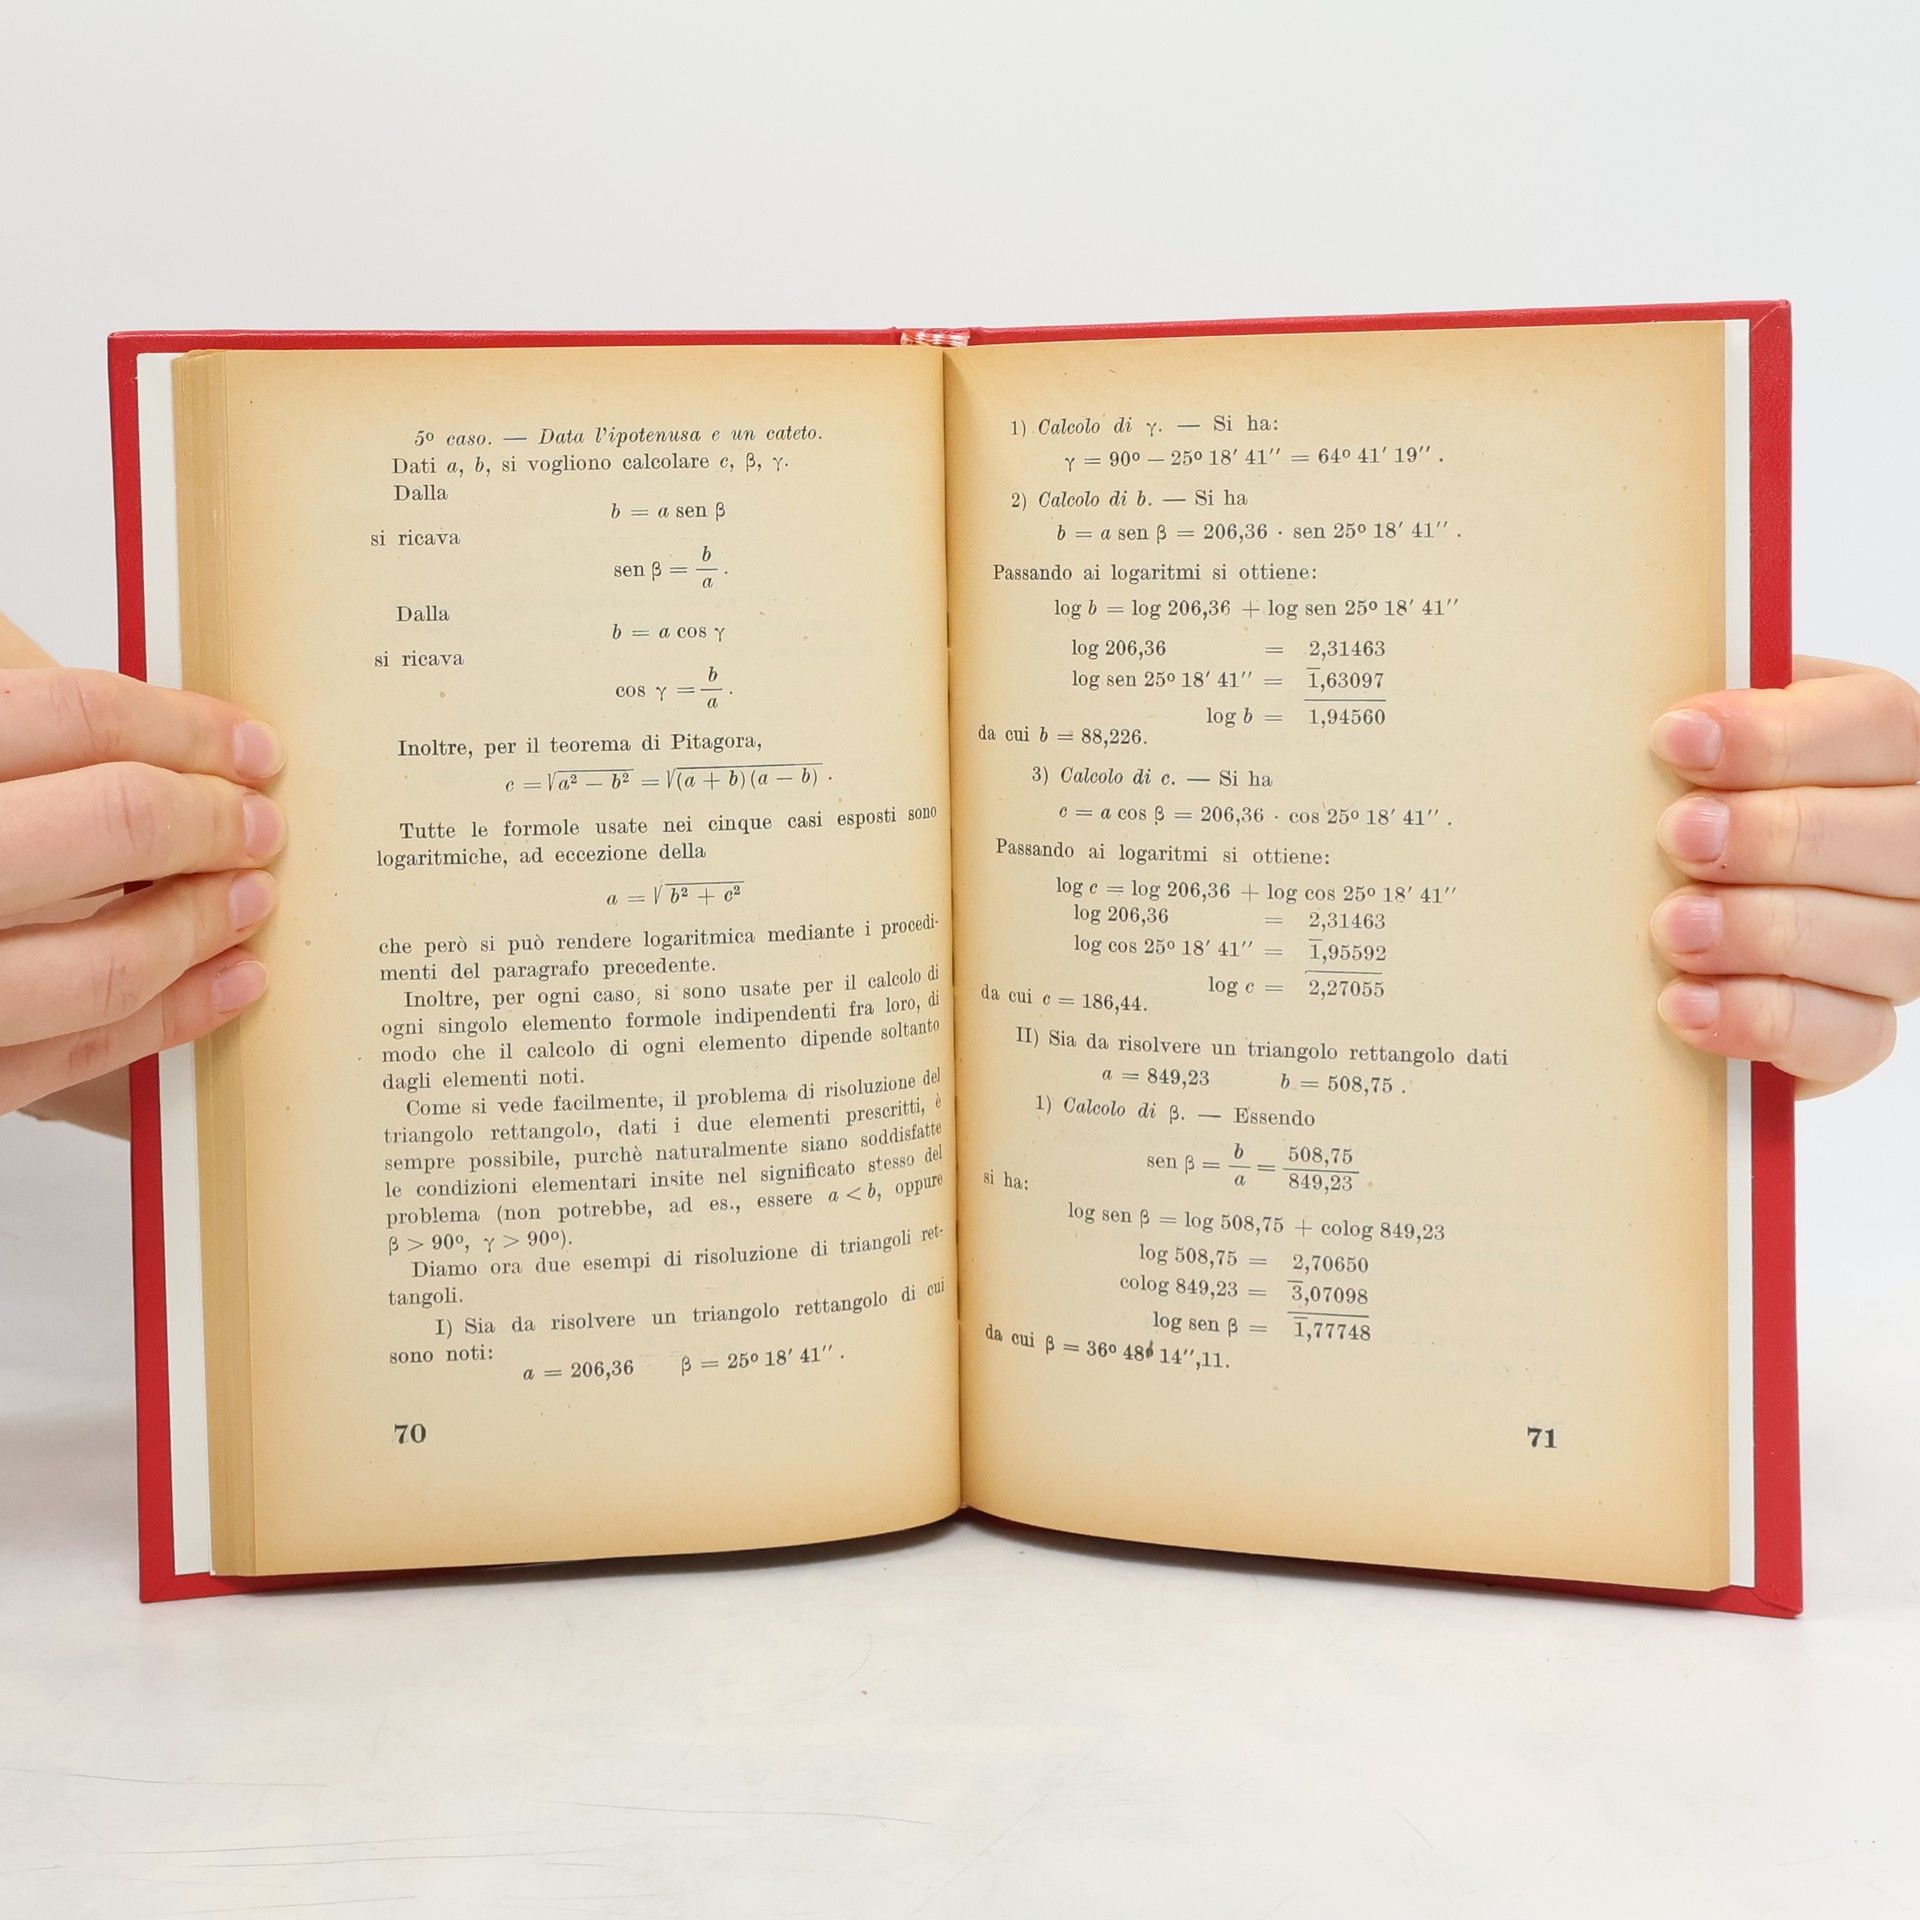 5º caso. — Data l'ipotenusa e un cateto.
Dati a, b, si vogliono calcolare c, β, γ.
Dalla
b = a sen β
si ricava
sen β = b/a .
Dalla
b = a cos γ
si ricava
cos γ = b/a .
Inoltre, per il teorema di Pitagora,
c = √a² − b² = √(a + b)(a − b) .
Tutte le formole usate nei cinque casi esposti sono
logaritmiche, ad eccezione della
a = √b² + c²
che però si può rendere logaritmica mediante i procedi-
menti del paragrafo precedente.
Inoltre, per ogni caso, si sono usate per il calcolo di
ogni singolo elemento formole indipendenti fra loro, di
modo che il calcolo di ogni elemento dipende soltanto
dagli elementi noti.
Come si vede facilmente, il problema di risoluzione del
triangolo rettangolo, dati i due elementi prescritti, è
sempre possibile, purchè naturalmente siano soddisfatte
le condizioni elementari insite nel significato stesso del
problema (non potrebbe, ad es., essere a < b, oppure
β > 90º, γ > 90º).
Diamo ora due esempi di risoluzione di triangoli ret-
tangoli.
I) Sia da risolvere un triangolo rettangolo di cui
sono noti:
a = 206,36 β = 25º 18′ 41′′ .
70
1) Calcolo di γ. — Si ha:
γ = 90º − 25º 18′ 41′′ = 64º 41′ 19′′ .
2) Calcolo di b. — Si ha
b = a sen β = 206,36 · sen 25º 18′ 41′′ .
Passando ai logaritmi si ottiene:
log b = log 206,36 + log sen 25º 18′ 41′′
log 206,36 = 2,31463
log sen 25º 18′ 41′′ = 1̅,63097
log b = 1,94560
da cui b = 88,226.
3) Calcolo di c. — Si ha
c = a cos β = 206,36 · cos 25º 18′ 41′′ .
Passando ai logaritmi si ottiene:
log c = log 206,36 + log cos 25º 18′ 41′′
log 206,36 = 2,31463
log cos 25º 18′ 41′′ = 1̅,95592
log c = 2,27055
da cui c = 186,44.
II) Sia da risolvere un triangolo rettangolo dati
a = 849,23 b = 508,75 .
1) Calcolo di β. — Essendo
sen β = b/a = 508,75/849,23
si ha:
log sen β = log 508,75 + colog 849,23
log 508,75 = 2,70650
colog 849,23 = 3̅,07098
log sen β = 1̅,77748
da cui β = 36º 48′ 14′′,11.
71